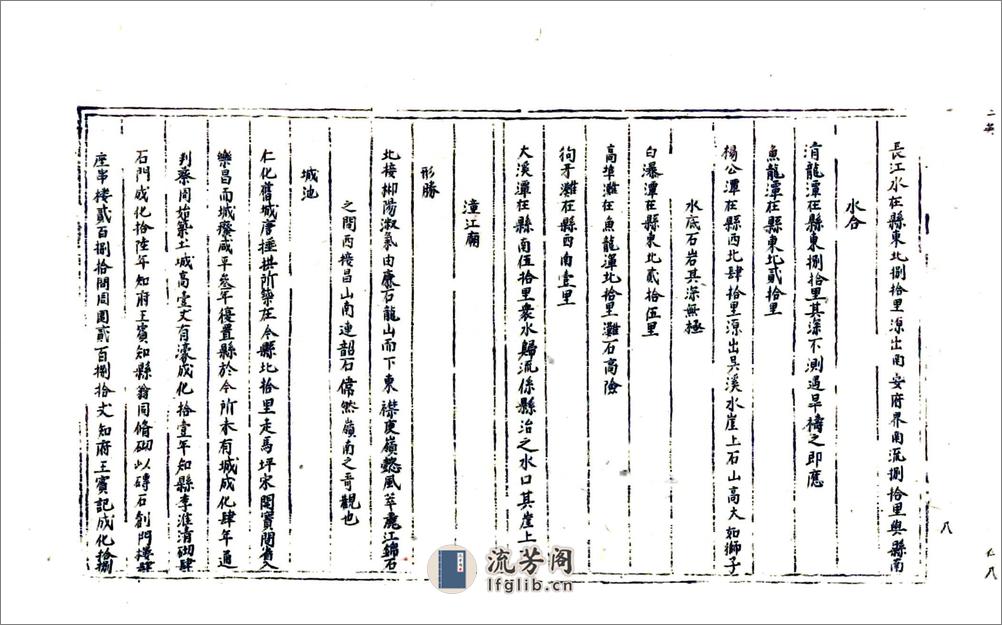 長江水在縣東北捌拾里源出南安府界南流捌拾里與縣南
水合
湞龍潭在縣東捌拾里其深不測遇旱禱之即應
魚龍潭在縣東北貳拾里
楊公潭在縣西北肆拾里源出吳溪水崖上石山高大如獅子
水底石岩其深無極
白瀑潭在縣東北貳拾伍里
高埠灘在魚龍潭北拾里灘石高險
狗牙灘在縣西南壹里
大溪潭在縣南伍拾里衆水歸流係縣治之水口其崖上
潼江廟
形勝
北接郴陽淑氣由廉石龍山而下東襟庾嶺懿風萃麗江錦石
之間西接昌山南連韶石儋然嶺南之奇觀也
城池
仁化舊城唐垂拱所築在今縣北拾里走馬坪宋開寶間省入
樂昌而城廢咸平叁年復置縣於今所未有城成化肆年通
判蔡周始築土城高壹丈有濠成化拾壹年知縣李淮清砌肆
石門成化拾陸年知府王賓知縣翁同脩砌以磚石創門樓肆
座串樓貳百捌拾間周圍貳百捌拾丈知府王賓記成化拾捌
八
流芳阁
lfglib.cn